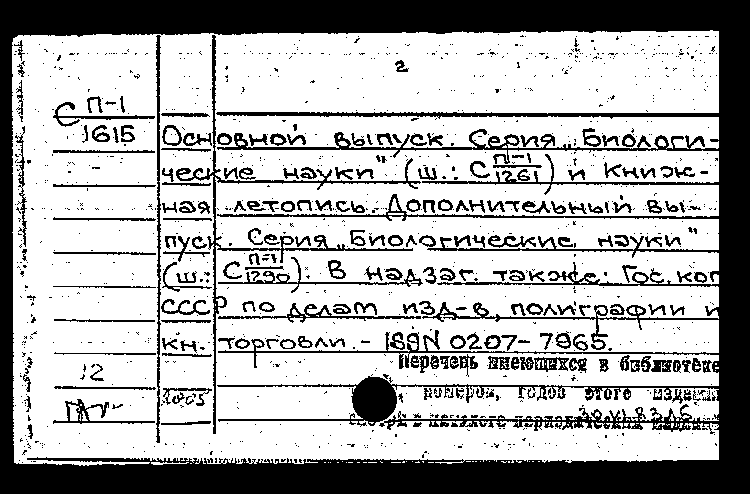 2
С П-1
1615
Основной выпуск. Серия „Биологи-
ческие науки" (ш.: С П-1
1261) и Книж-
ная летопись. Дополнительный вы-
пуск. Серия „Биологические науки"
(ш.: С П-1
1290). В надзаг. также: Гос. ком
СССР по делам изд-в, полиграфии и
кн. торговли. - ISSN 0207-7965.
12
Перечень имеющихся в библиотеке
номеров, годов этого издания
периодических